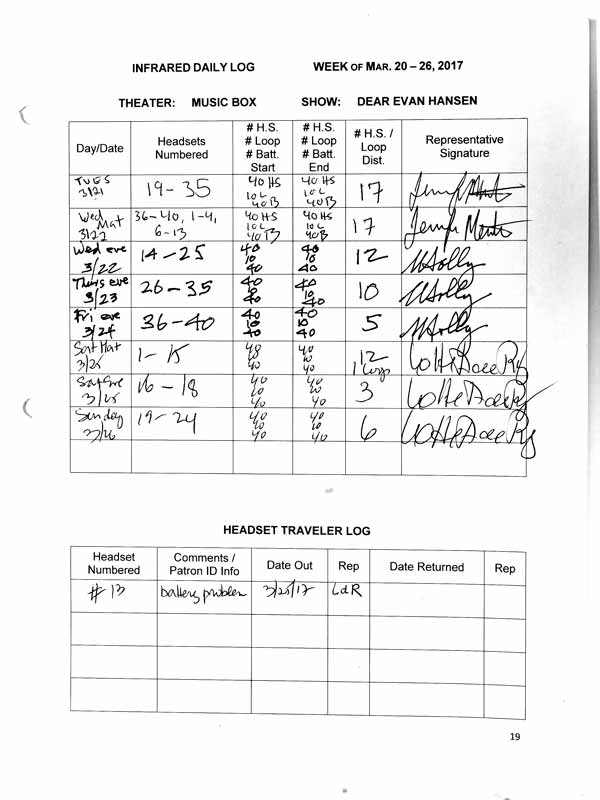 INFRARED DAILY LOG WEEK OF MAR. 20 – 26, 2017
THEATER: MUSIC BOX SHOW: DEAR EVAN HANSEN
Day/Date Headsets Numbered # H.S. # Loop # Batt. Start # H.S. # Loop # Batt. End # H.S. / Loop Dist. Representative Signature
TUES 3/21 19-35 40 HS 10 L 40 B 40 HS 10 L 40 B 17
Wed Mat 3/22 36-40, 1-4, 6-13 40 HS 10 L 40 B 40 HS 10 L 40 B 17
Wed eve 3/22 14-25 40 10 40 40 10 40 12
Thurs eve 3/23 26-35 40 10 40 40 10 40 10
Fri eve 3/24 36-40 40 10 40 40 10 40 5
Sat Mat 3/25 40 10 40 40 10 40 12 1 Loop
Sat Eve 3/25 16-18 40 10 40 40 10 40 3
Sunday 3/26 19-24 40 10 40 40 10 40 6
HEADSET TRAVELER LOG
Headset Numbered Comments / Patron ID Info Date Out Rep Date Returned Rep
# 13 battery problem 3/25/17 LdR
19